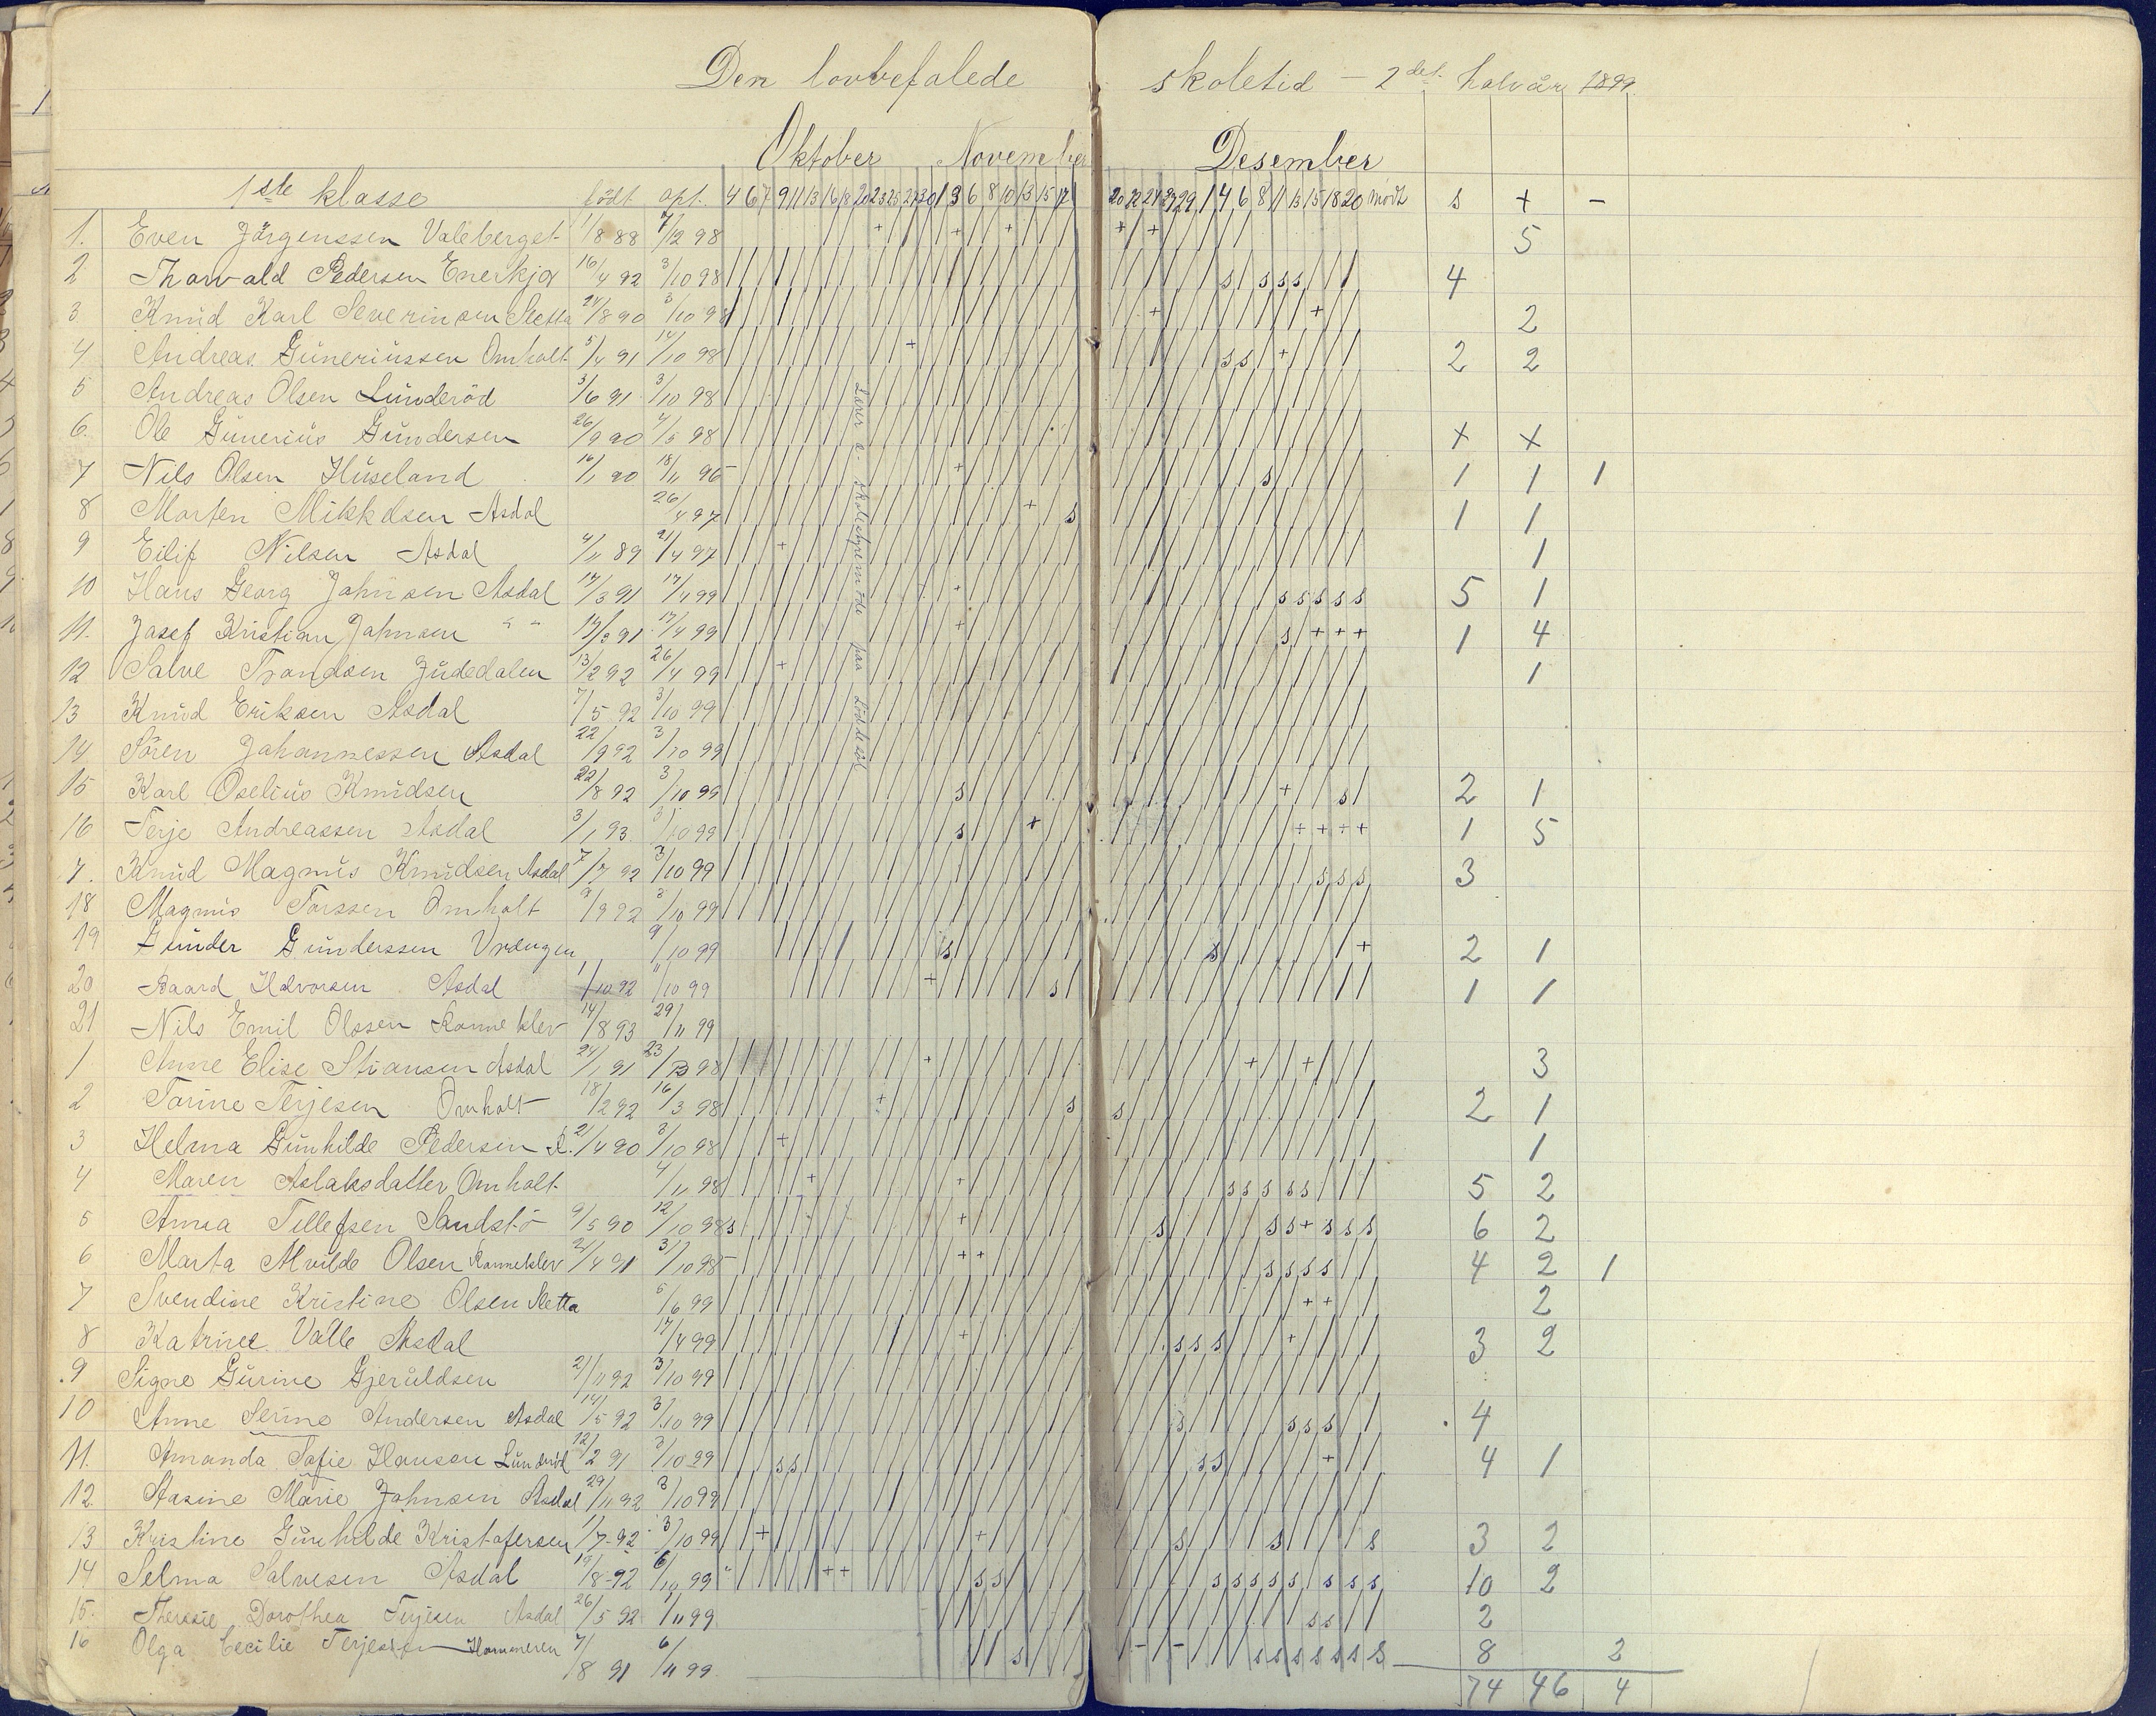 Den lovbefalede skoletid – 2det halvår 1899
Oktober November Desember
1ste klasse födt opt. 4 6 7 9 11 13 16 18 20 23 25 27 30 1 3 6 8 10 13 15 17 20 22 24 27 29 1 4 6 8 11 13 15 18 20 mödt s + –
1. Even Jörgenssen Valeberget 11/8 88 7/12 98 + + + + + 5
2. Thorvald Pedersen Enerkja 16/4 92 3/10 98 s s s s 4
3 Knud Karl Severinsen Sletta 24/8 90 3/10 98 + + 2
4 Andreas Guneriussen Omholt 5/4 91 14/10 98 + s s + 2 2
5 Andreas Olsen Lunderöd 3/6 91 3/10 98
6. Ole Gunerius Gundersen 26/9 90 4/5 98 + +
7 Nils Olsen Huseland 16/1 90 18/11 96 – + s 1 1 1
8 Morten Mikkelsen Asdal 26/4 97 + s 1 1
9 Eilif Nilsen Asdal 4/11 89 21/4 97 + 1
10 Hans Georg Johnsen Asdal 17/3 91 17/4 99 + s s s s s 5 1
11. Josef Kristian Johnsen " " 17/3 91 17/4 99 + s + + + 1 4
12 Salve Trondsen Judedalen 13/2 92 26/4 99 + 1
13 Knud Eriksen Asdal 7/5 92 3/10 99
14 Sören Johannessen Asdal 22/9 92 3/10 99
15 Karl Oselius Knudsen 22/8 92 3/10 99 s + s 2 1
16 Terje Andreassen Asdal 3/1 93 3/10 99 s + + + + + 1 5
7. Knud Magnus Knudsen Asdal 7/7 92 3/10 99 s s s 3
18 Magnus Torssen Omholt 9/9 92 3/10 99
19 Gunder Gunderssen Vrængen 9/10 99 s s + 2 1
20 Baard Halvorsen Asdal 1/10 92 11/10 99 + s 1 1
21 Nils Emil Olssen Ronneklev 14/8 93 29/11 99
1 Anne Elise Stiansen Asdal 24/1 91 23/ 98 + + + 3
2 Torine Terjesen Omholt 18/2 92 16/3 98 + s s 2 1
3 Helma Gunhilde Pedersen 21/4 90 3/10 98 + 1
4 Maren Aslaksdatter Omholt 4/11 98 + + s s s s s 5 2
5 Anna Tellefsen Sandstö 9/5 90 12/10 98 s + s s s + s s s 6 2
6 Marta Alvilde Olsen Ronneklev 21/4 91 3/10 98 – + + s s s s 4 2 1
7 Svendine Kristine Olsen Sletta 5/6 99 + + 2
8 Katrine Valle Asdal 17/4 99 + s s s + 3 2
9 Signe Gurine Gjeruldsen 21/11 92 3/10 99
10 Anne Serine Andersen Asdal 14/5 92 3/10 99 s s s s 4
11. Amanda Sofie Hansen Lunderöd 12/2 91 3/10 99 s s s s + 4 1
12. Stasine Marie Johnsen Asdal 29/11 92 3/10 99
13 Kristine Gunhilde Kristofersen 11/7 92 3/10 99 + + s s s 3 2
14 Selma Salvesen Asdal 19/8 92 6/10 99 " + + s s s s s s s s s s 10 2
15. Theresie Dorothea Terjesen Asdal 26/5 92 1/11 99 s s 2
16 Olga Cecilie Terjesen Hommeren 7/8 91 6/11 99 s – – s s s s s s s 8 2
74 46 4
Lærer a. skolestyremöde paa Lödesöl